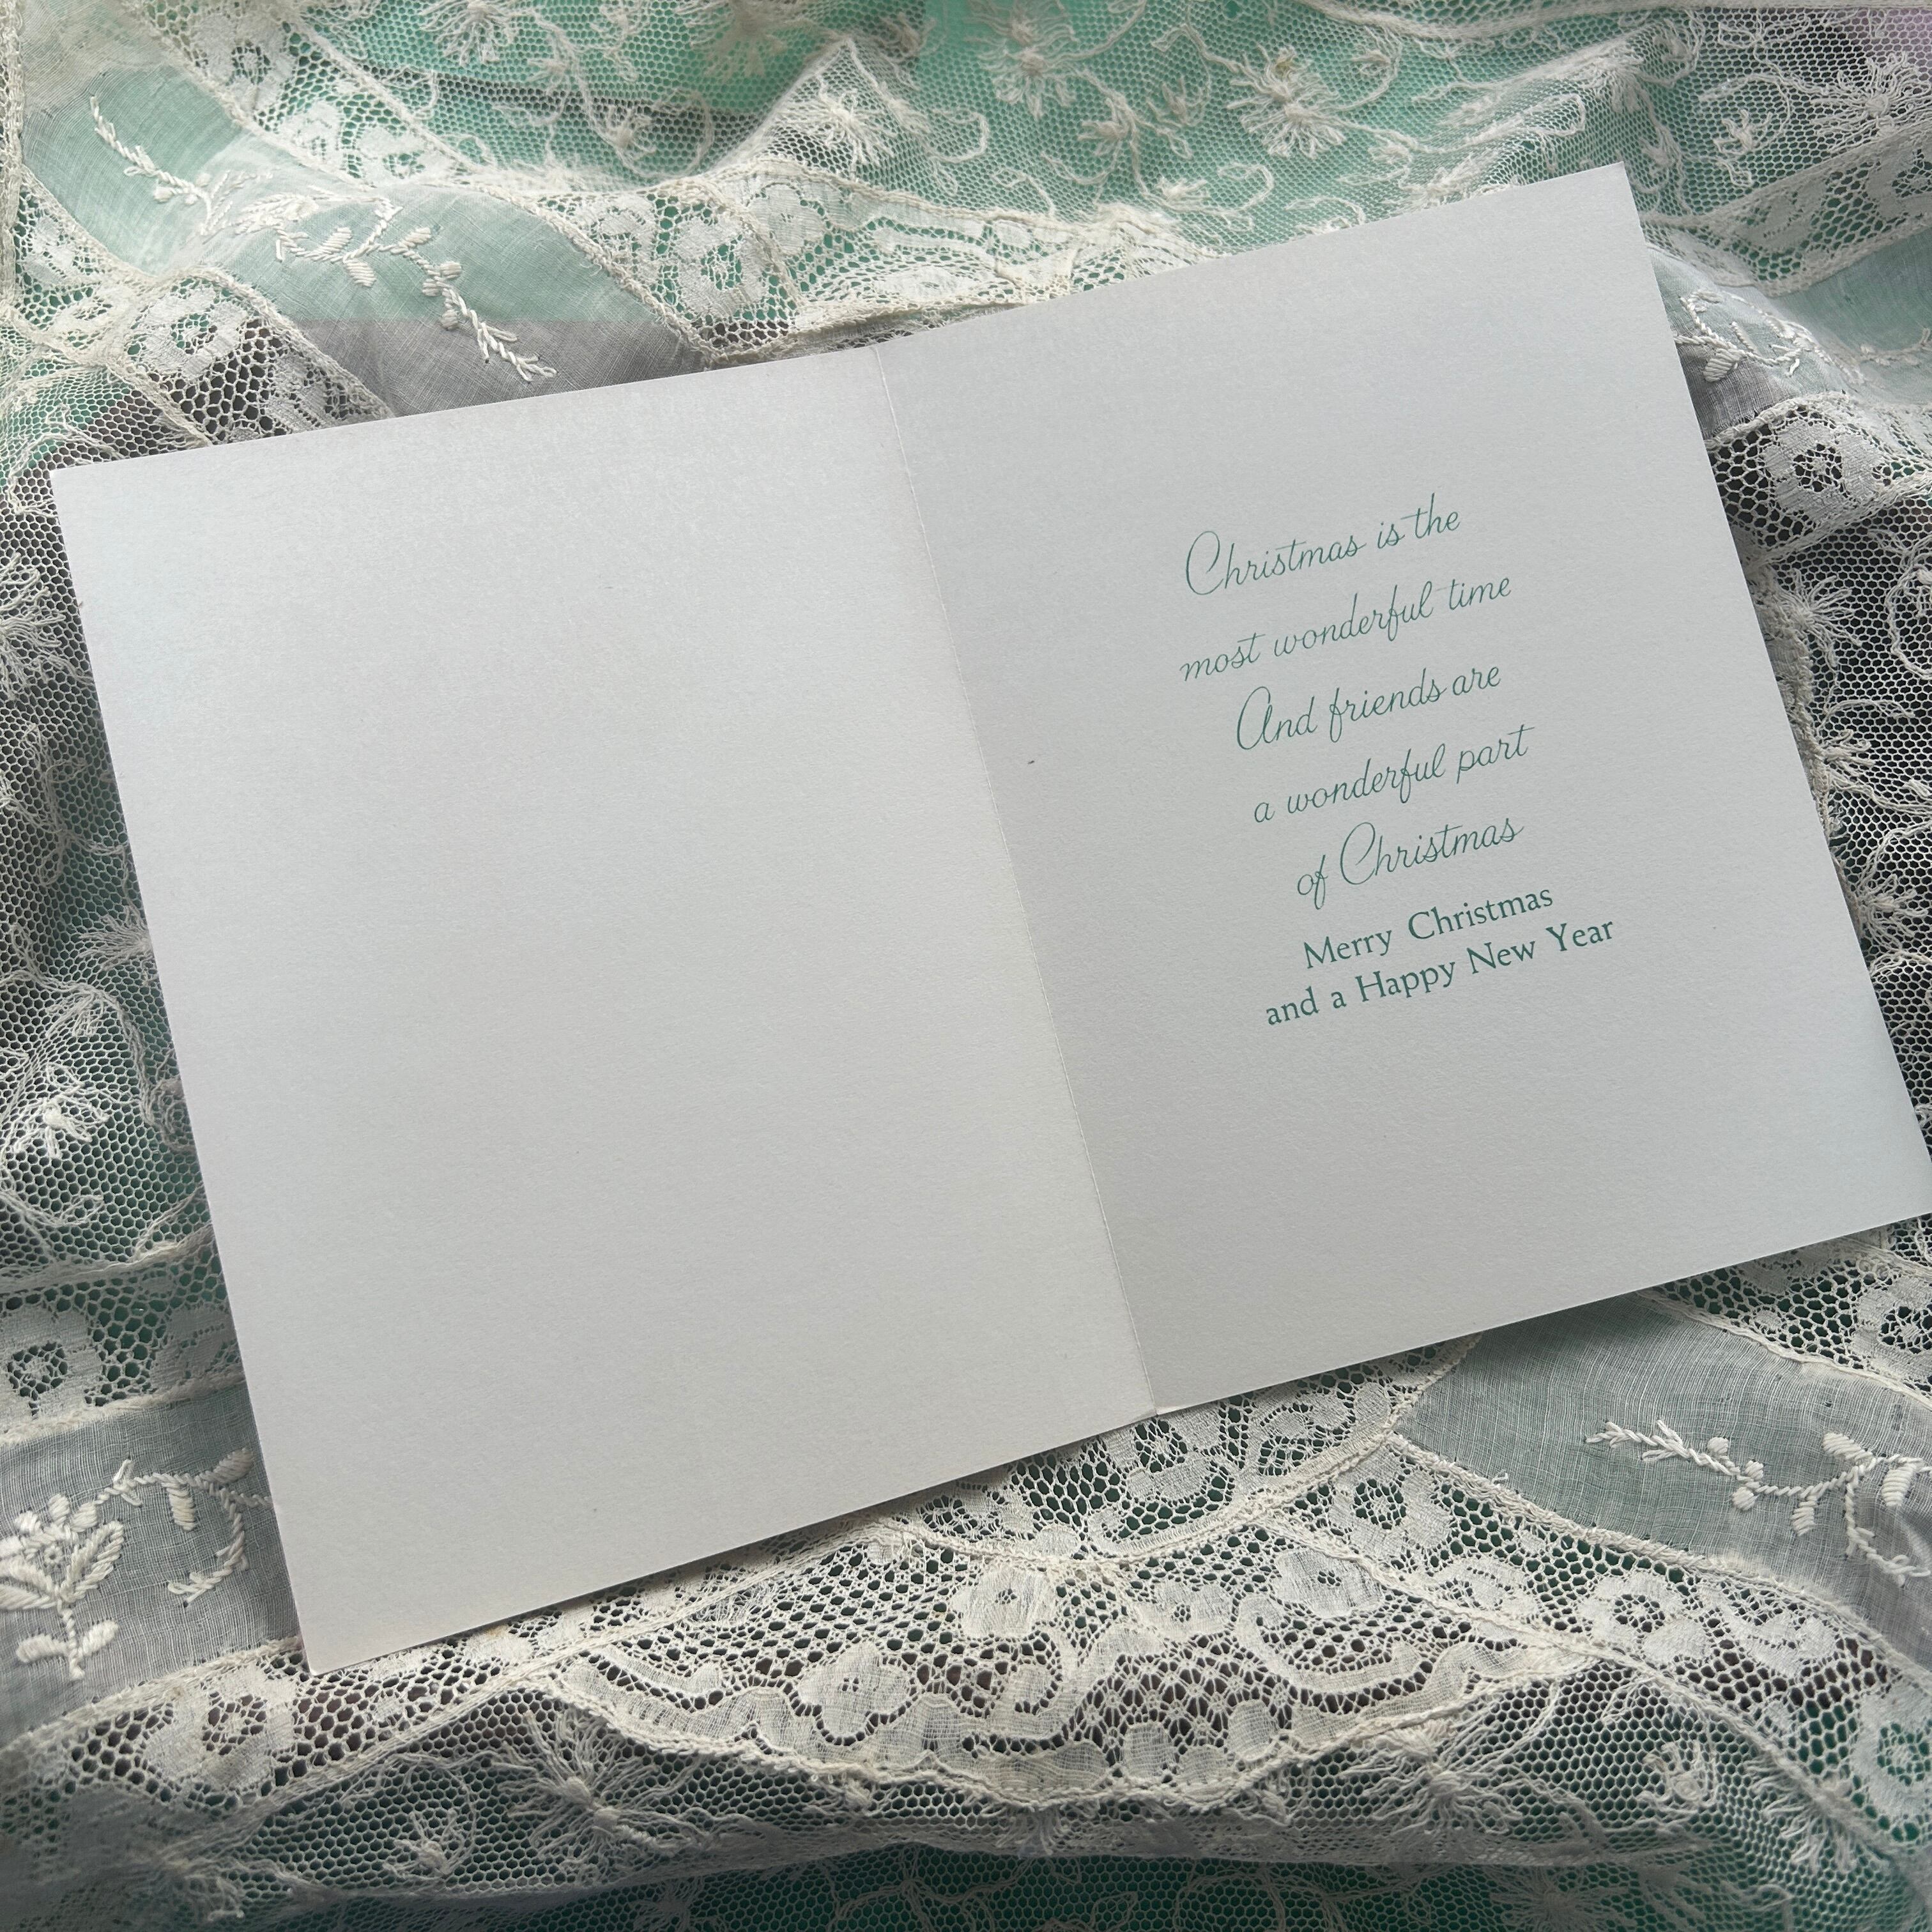 Christmas is the
most wonderful time
And friends are
a wonderful part
of Christmas
Merry Christmas
and a Happy New Year